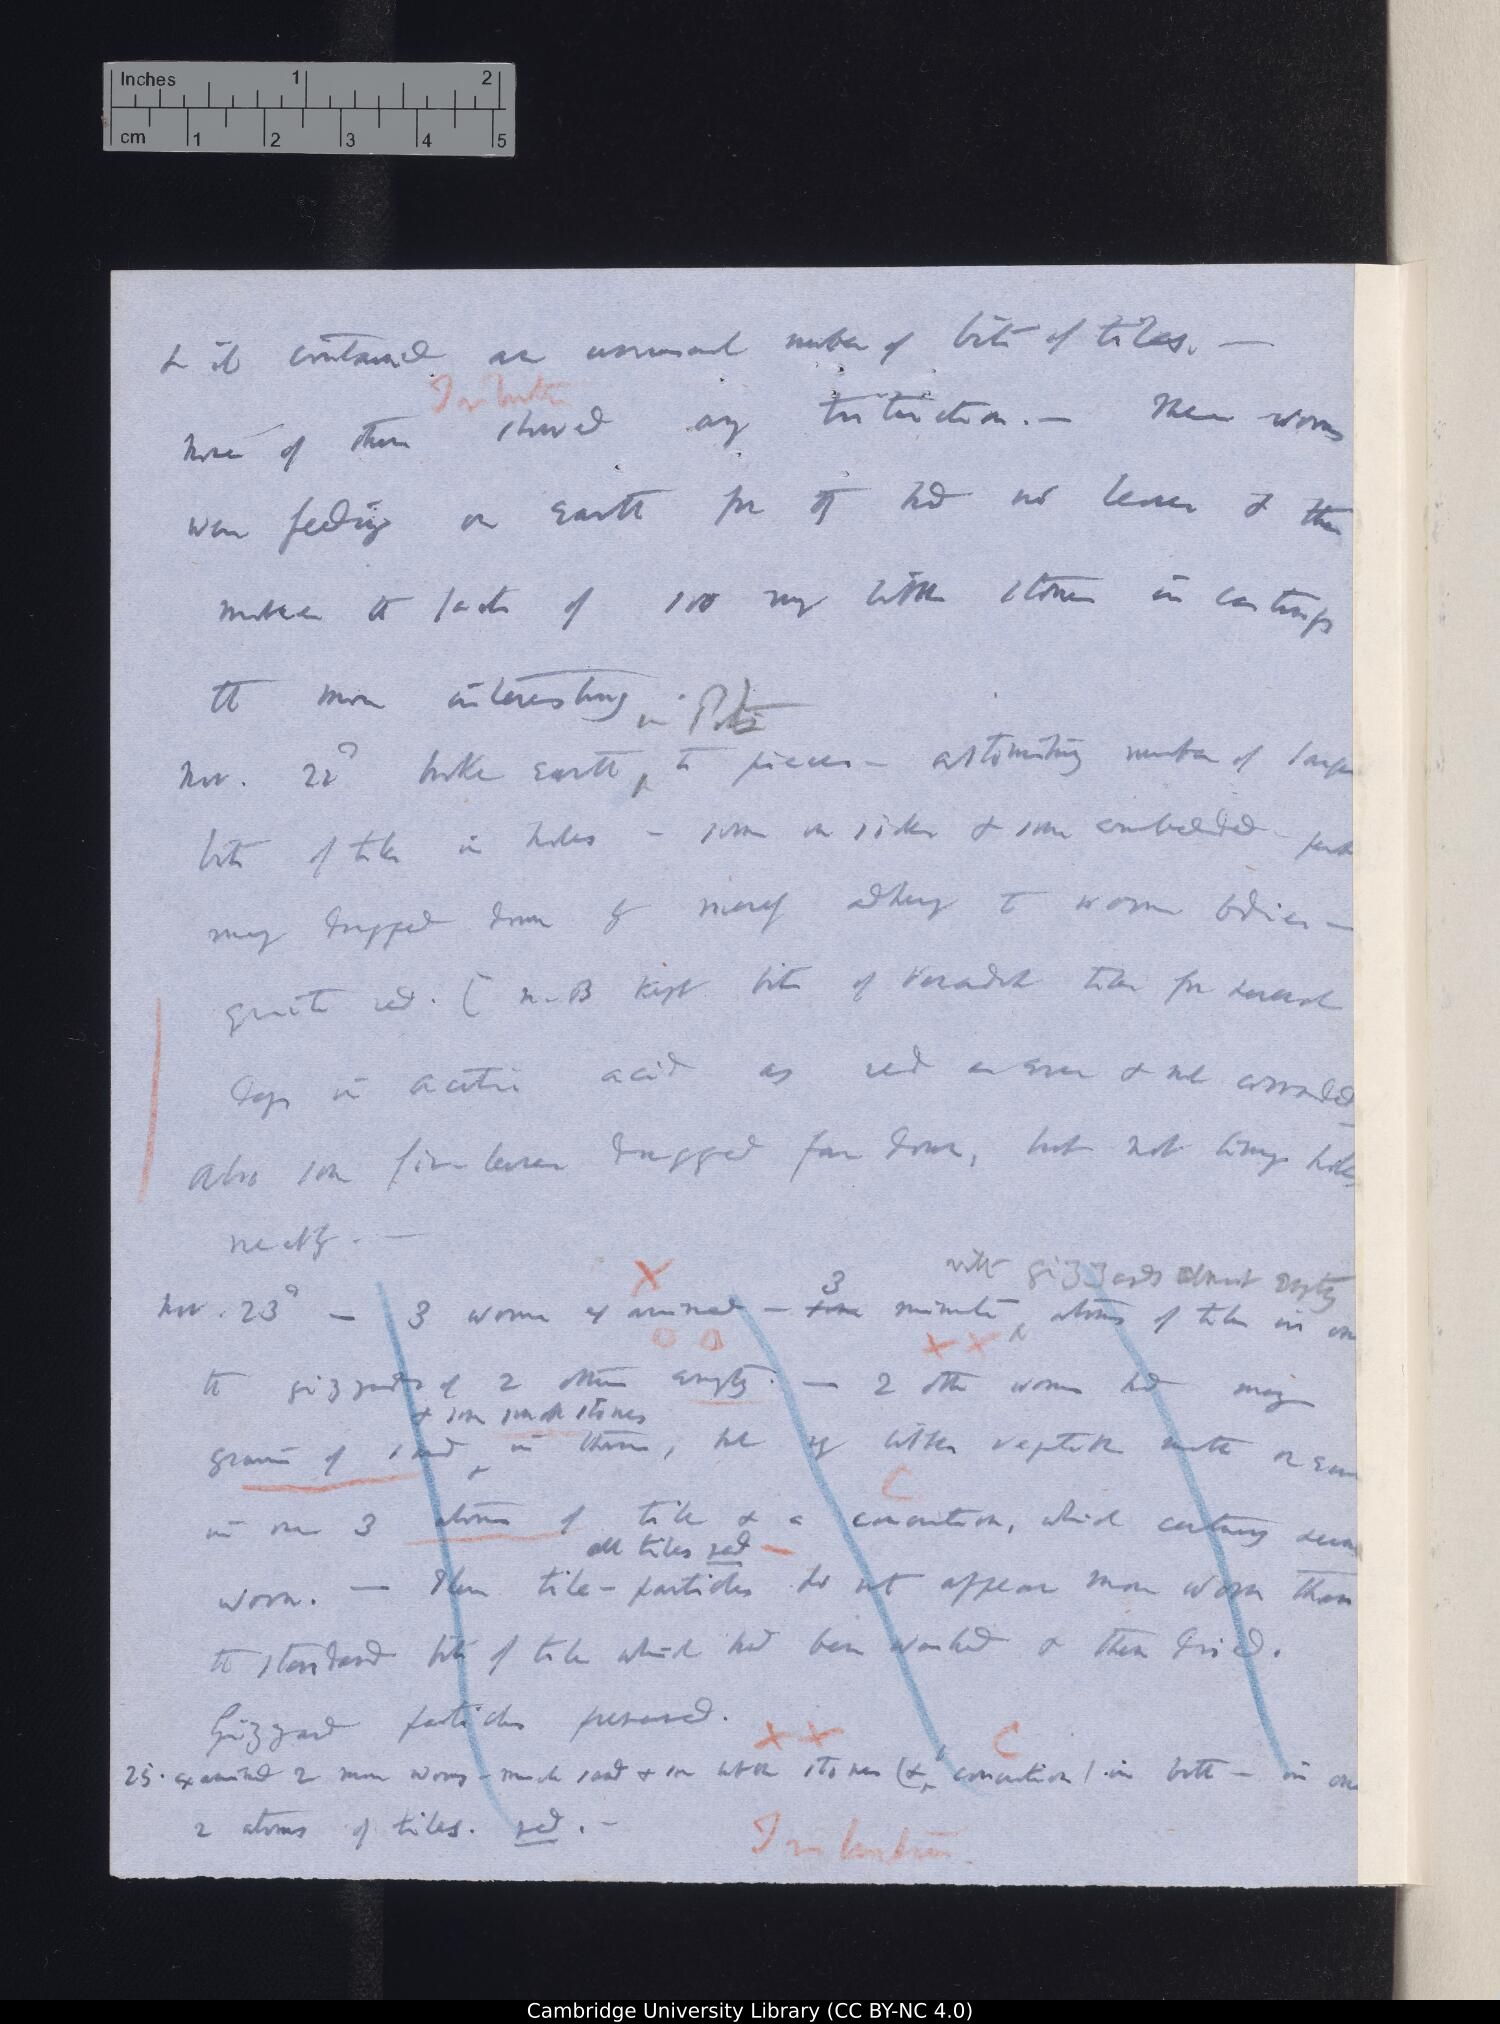 Inches 1 2
cm 1 2 3 4 5
& it contained an unusual number of bits of tiles. —
None of them showed any trituration. — These worms
were feeding on earth for they had no leaves & this
makes the facts of 100 any little stones in castings
the more interesting.
in Pots
Nov. 22d broke earth to pieces — astonishing number of large
bits of tiles in holes — some on sides & some embedded —
may dragged down by merely adhering to worms bodies —
quite red. ( N.B kept bits of tiles for several
days in acetic acid as red as ever & not corroded
Also some fir-leaves dragged far down, but not lining holes
neatly. —
X
with gizzards almost empty
Nov. 23d — 3 worms examined — 3 minute atoms of tiles in one
O O X X
the gizzards of 2 others empty. — 2 other worms had many
& some small stones
grains of sand in them, not any little vegetable matter or
C
in one 3 atoms of tile & a concretion, which certainly seems
all tiles red —
worn. — These tile-particles do not appear more worn than
the standard bits of tile which had been washed & then dried.
Gizzard particles preserved.
X X C
25. examined 2 more worms — much sand & some little stones (& concretion) in both — in one
2 atoms of tiles. red. —
Cambridge University Library (CC BY-NC 4.0)